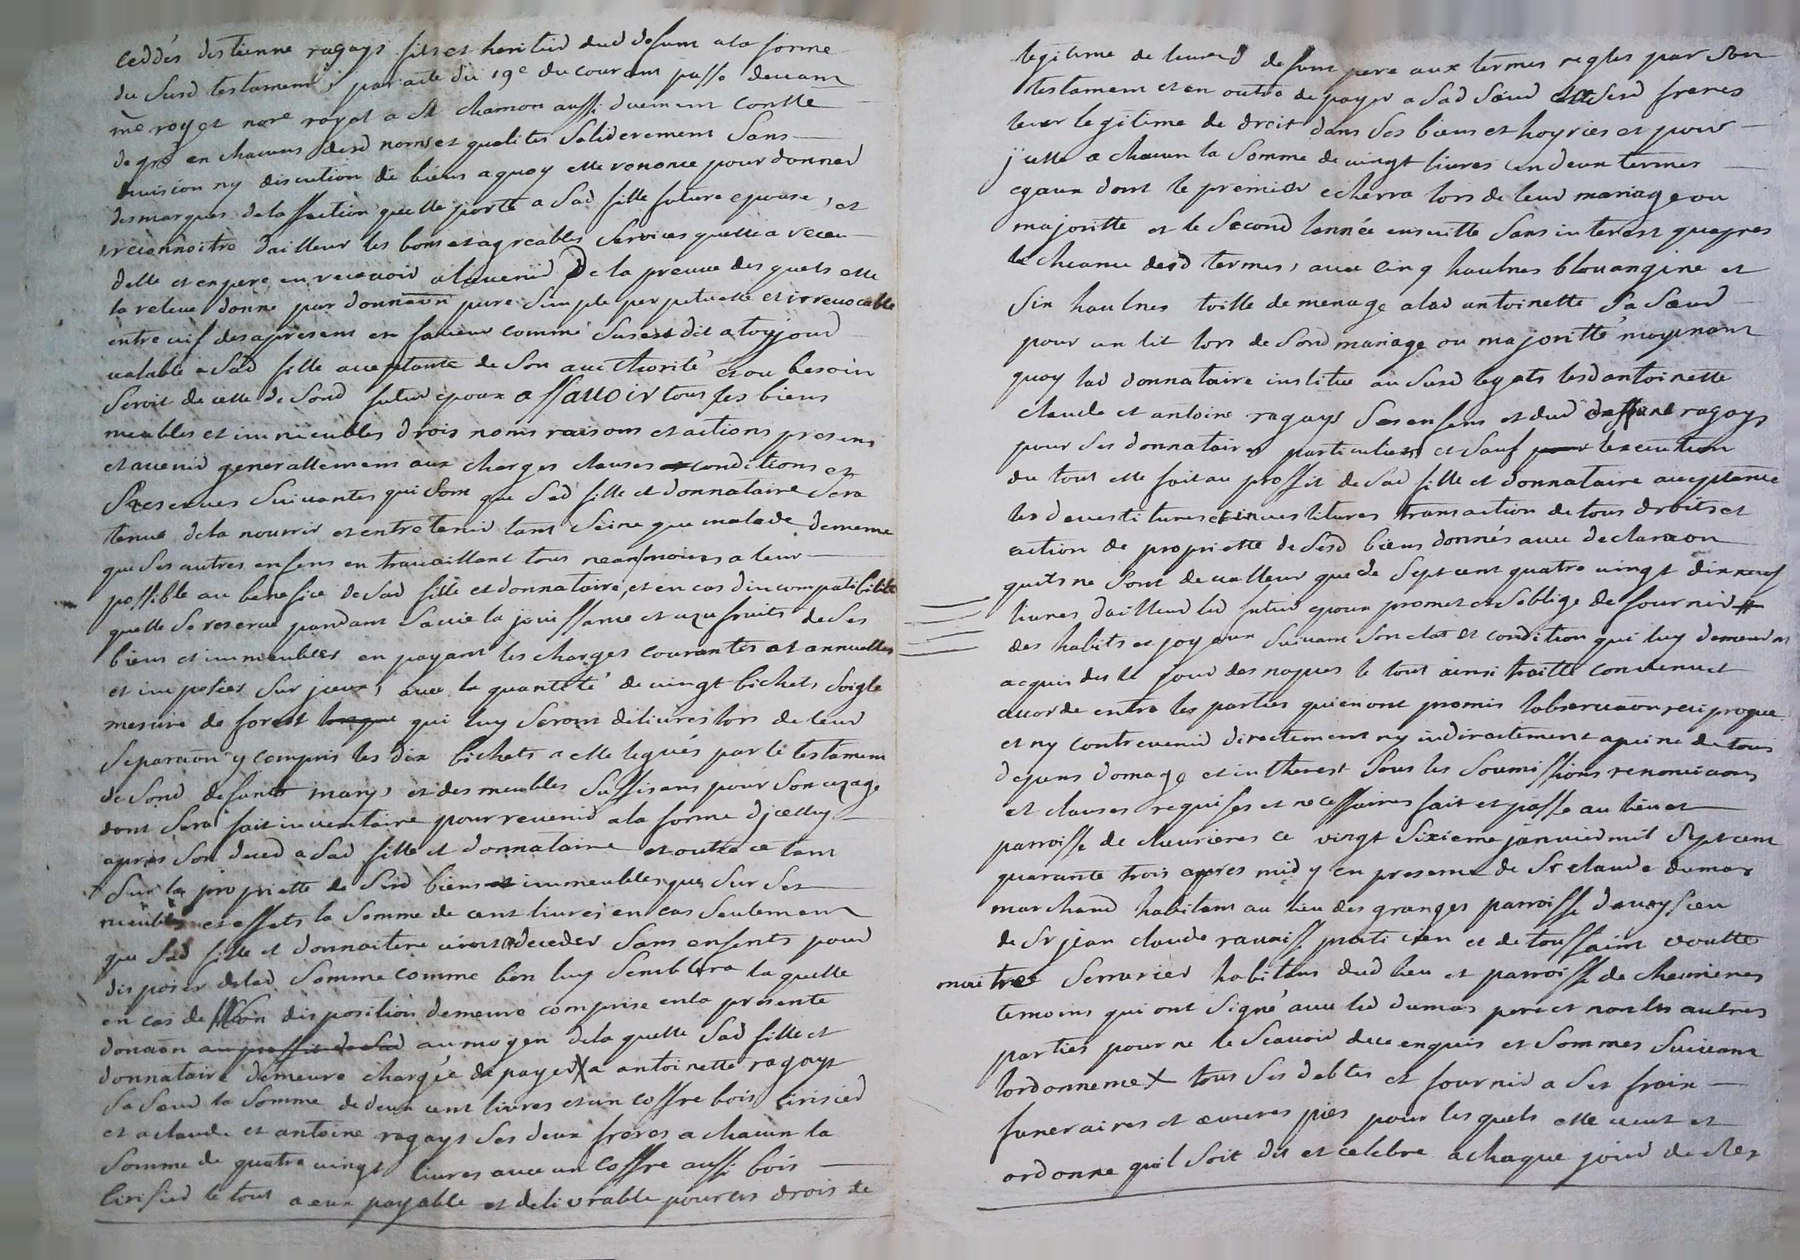 ceddés destienne ragays fils et heritier dud defunt a la forme
du susd testament, par acte du 19e du courant passé devant
me royet nore royal a St chamon aussi duement conttlé
de gré en chacuns desd noms et qualités soliderement sans
division ny discution de biens a quoy elle renonce pour donner
des marques de laffection quelle porte a sad fille future epouse, et
reconnoitre dailleur les bons et agreables services quelle a receu
delle et espere en recevoir a lavenir de la preuve des quels elle
la releve donne par donnaōn pure simple perpetuelle et irrevocable
entre vif des apresent en faveur comme susest dit a toujour
valable a sad fille acceptante de son authorité et ou besoin
seroit de celle de sond futur epoux assavoir tous ses biens
meubles et immeubles drois noms raisons et actions presens
et avenir generallement aux charges clauses et conditions et
reserves suivantes qui sont que sad fille et donnataire sera
tenue de la nourrir et entretenir tant seine que malade de meme
que ses autres enfens en travaillant tous neansmoins a leur
possible au benefice de sad fille et donnataire, et en cas dincompatibilité
quelle se reserve pandant sa vie la jouissance et uzufruits de ses
biens et immeubles en payant les charges courantes et annuelles
et imposées sur jceux, avec la quantité de vingt bichets soigle
mesure de forest lorsque qui luy seront délivrés lors de leur
separaōn y compris les dix bichets a elle legués par le testament
de sond defunt mary, et des meubles suffisans pour son uzage
dont sera fait inventaire pour revenir a la forme djcelluy
apres son deced a sad fille et donnataire et outre ce tant
sur la proprietté de sesd biens et immeubles que sur ses
meubles et effets la somme de cent livres en cas seulement
que sad fille et donnataire vint a deceder sans enfents pour
disposer de lad somme comme bon luy semblera la quelle
en cas de non disposition demeure comprise en la presente
donaōn au proffit de sad au moyen de la quelle sad fille et
donnataire demeure chargée de payer X a antoinette ragays
sa sœur la somme de deux cent livres et un coffre bois cirisier
et a claude et antoine ragays ses deux freres a chacun la
somme de quatre vingt livres avec un coffre aussi bois
cirisier le tout a eux payable et delivrable pour les drois de
legitime de leurd defunt pere aux termes reglés par son
testament et en outre de payer a sad sœur et sesd freres
leur legitime de droit dans ses biens et hoyries et pour
jcelle a chacun la somme de vingt livres en deux termes
egaux dont le premier echerra lors de leur mariage ou
majoritté et le second lannée ensuitte sans interest quapres
lecheance desd termes, avec cinq haulnes blouangine et
six haulnes toille de menage a lad antoinette sa sœur
pour un lit lors de sond mariage ou majoritté moyenant
quoy lad donnataire institue au susd legats lesd antoinette
claude et antoine ragays ses enfens et dud deffunt ragays
pour ses donnataires particuliers et sauf pour lexecution
du tout elle fait au proffit de sad fille et donnataire acceptante
les devestitures et investitures transaction de tous droits et
action de proprietté de sesd biens donnés avec declaraōn
quils ne sont de valleur que de sept cent quatre vingt dix neuf
livres dailleur led futur epoux promet et soblige de fournir
des habits et joyaux suivant son etat et condition qui luy demeuront
acquis des le jour des nopces le tout ainsi traitté convenu et
accordé entre les parties qui en ont promis lobservaōn reciproque
et ny contrevenir directement ny indirectement a peine de tous
depens domage et intherest sous les soumissions renonciaōns
et clauses requises et necessaires fait et passé au lieu et
parroisse de chevrieres ce vingt sixieme janvier mil sept cent
quarante trois apres midy en presence de Sr claude dumas
marchand habitant au lieu des granges parroisse daveysieu
de Sr jean claude ravaisse praticien et de toussaint voulte
maitre serrurier habitans dud lieu et parroisse de chevrieres
temoins qui ont signé avec led dumas pere et non les autres
parties pour ne le scavoir de ce enquis et sommés suivant
lordonnence X tous ses debtes et fournir a ses fraix
funeraires et œuvres pies pour lesquels elle veut et
ordonne quil soit dit et celebré a chaque jour de ses